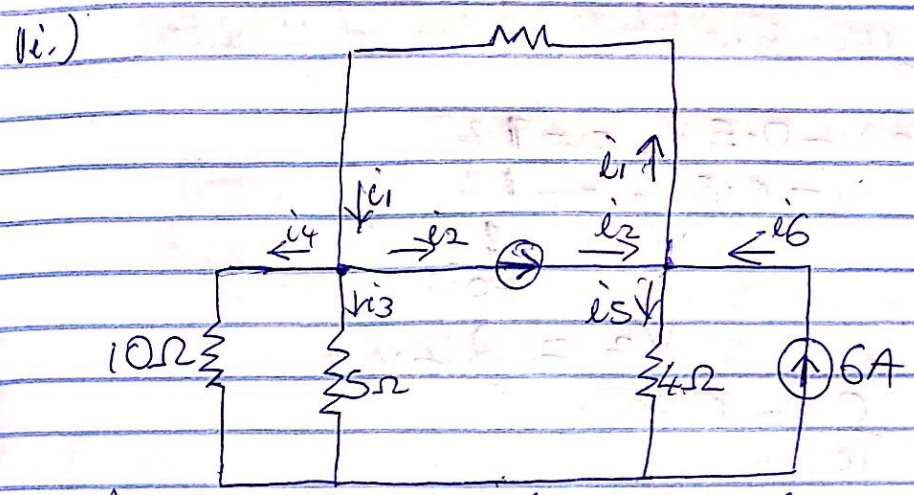 i1 ↑
↓ i1
i4
←
→ i2
i2
→
i6
←
↓ i3
i5 ↓
10Ω
5Ω
4Ω
6A